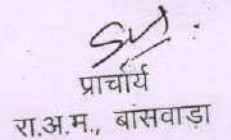 प्राचार्य
रा.अ.म., बांसवाड़ा